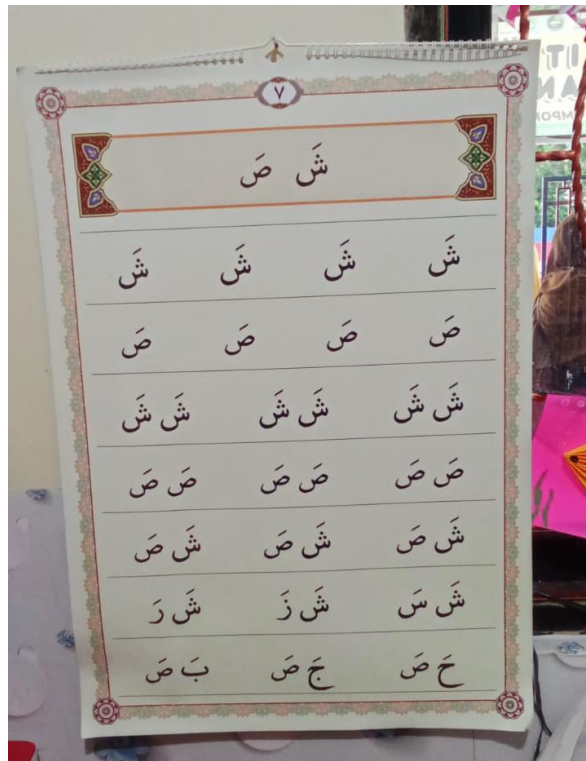 ٧
شَ صَ
شَ شَ شَ شَ
صَ صَ صَ صَ
شَ شَ شَ شَ شَ شَ
صَ صَ صَ صَ صَ صَ
شَ صَ شَ صَ شَ صَ
شَ سَ شَ زَ شَ رَ
حَ صَ جَ صَ بَ صَ